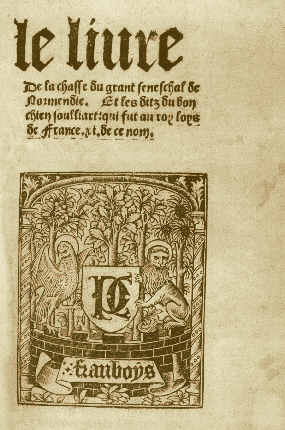 le liure
De la chasse du grant seneschal de
Normendie. Et les ditz du bon
chien soulliart: qui fut au roy loys
de France. xi. de ce nom.
PC
frauboys